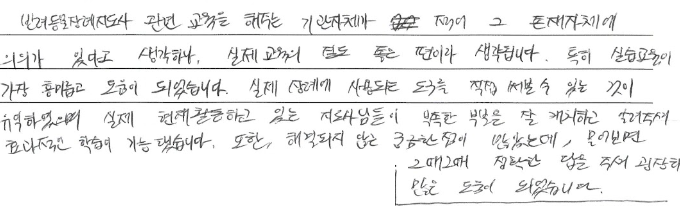 반려동물장례지도사 관련 교육을 해주는 기관자체가 적어 그 존재자체에
의의가 있다고 생각하나, 실제 교육의 질도 좋은 편이라 생각됩니다. 특히 실습교육이
가장 흥미롭고 도움이 되었습니다. 실제 장례에 사용되는 도구를 직접 써볼 수 있는 것이
유익하였으며 실제 현재 활동하고 있는 지도사님들이 부족한 부분을 잘 캐치하고 알려주셔서
효과적인 학습이 가능했습니다. 또한, 해결되지 않는 궁금한 점이 많았는데, 물어보면
그때그때 정확한 답을 주셔서 굉장히
많은 도움이 되었습니다.